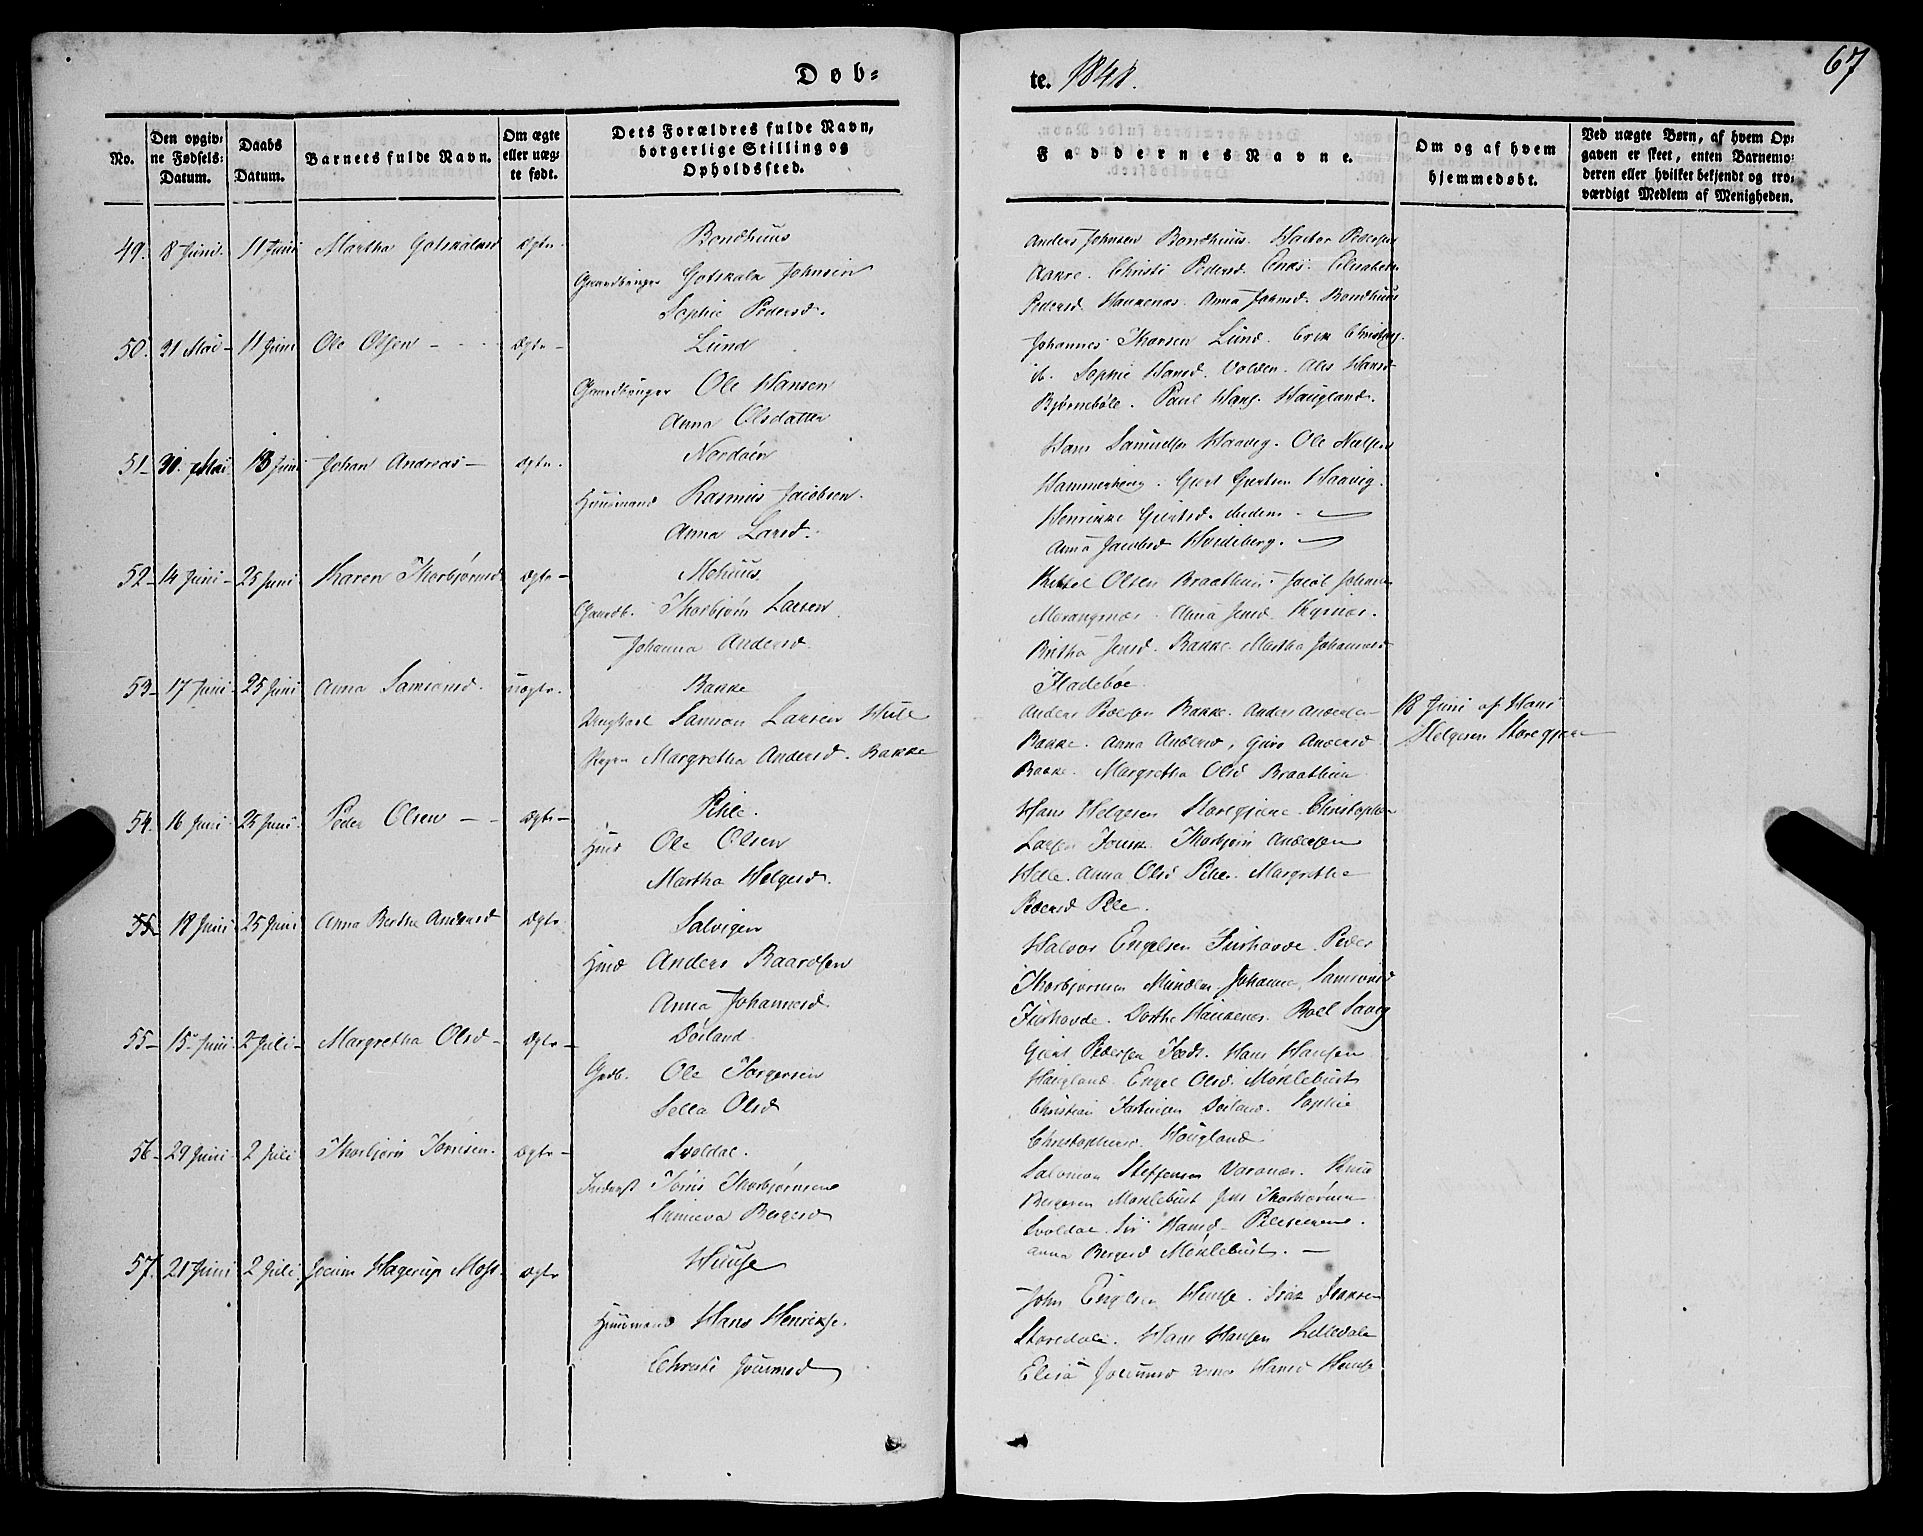 Døb=
te. 1848.
67
No.
Den opgiv=
ne Fødsels=
Datum.
Daabs
Datum.
Barnets fulde Navn.
Om ægte
eller uæg=
te født.
Dets Forældres fulde Navn,
borgerlige Stilling og
Opholdssted.
Faddernes Navne.
Om og af hvem
hjemmedøbt.
Ved uægte Børn, af hvem Op=
gaven er skeet, enten Barnemo=
deren eller hvilket bekjendt og tro=
værdigt Medlem af Menigheden.
49. 8 Juni. 11 Juni Martha Gotskalksd ægte.
Bondhuus
Gaardbruger Gotskalk Johnsen
Sophie Pedersd.
Anders Johnsen Bondhuus. Pedersen
Christi Pedersd. Elisabeth
Pedersd. Haukenæs. Anna Johnsd. Bondhuus
50. 31 Mai - 11 Juni Ole Olsen - ægte -
Lund
Gaardbruger Ole Hansen
Anna Olsdatter
Johannes Thorsen Lund.
ib. Sophie Hansd. Volden. Hansd
Bjørnebøle. Paul Hans. Haugland.
51- 30. Mai 13 Juni Johan Andreas - ægte.
Nordøen
Huusmand Rasmus Jacobsen.
Anna Larsd.
Hans Samuelsen Haavig. Ole Nielsen
Hammerhoug. Giert Giertsen Haavig.
Henrikke Giertsd.
Anna Jacobsd Hvideberg.
52- 14 Juni - 25 Juni Karen Thorbjørnsd ægte -
Mehuus
Gaardb. Thorbjørn Larsen
Johanna Andersd.
Olsen Braathun. Jacob Johann
Anna Jensd.
Britha Jensd. Bakke. Martha Johannesd
Fladebøe.
53- 17 Juni - 25 Juni Anna Samsonsd. uægte.
Bakke
Ungkarl Samson Larsen Hille
Pigen Margretha Andersd. Bakke
Anders Pedersen Bakke. Anders Andersen
Bakke. Anna Andersd, Guro Andersd
Bakke. Margretha Olsd Braathun
18 Juni af Hans
Helgesen Storegjære
54. 16 Juni 25 Juni. Peder Olsen - - ægte -
Pihle.
Huus Ole Olsen
Martha Helgesd.
Hans Helgesen Storegjære. Christopher
Larsen Thorbjørn Andersen
Helle. Anna Olsd Pihle. Margretha
Pedersd Pile.
55 18 Juni 25 Juni Anna Berthe Andersd ægte
Salvigen
Huus Anders Baardsen
Anna Johannesd.
Halvor Engelsen Furhovde. Peder
Thorbjørnsen Mundem. Johanna Samsonsd
Furhovde. Dorthe Haukenæs. Roel
55- 15 Juni 2 Juli - Margretha Olsd - ægte -
Døsland
Grdb. Ole Torgersen
Sella Olsd
Giert Pedersen Hans Hansen
Haugland. Engel Olsd. Møklebust
Christian Døsland. Sophie
Christophersd. Haugland
56- 29 Juni - 2 Juli Thorbjørn Tørrisen. ægte -
Svoldal.
Inderst Tørris Thorbjørnsen
Sunneva Bergesd
Salomon Steffensen Varanæs. Knud
Bergesen Møklebust Jens Thorbjørnsen
Svoldal Siri Hansd
Anna Bergesd Møklebust. -
57. 21 Juni 2 Juli Jocum Hagerup Mohr. ægte
Huuse
Huusmand Hans Henrikse.
Christi Jocumsd
John Engelsen Huuse. Isak Isaksen
Storedale. Hans Hansen Lilledale
Elisa Jocumsd Hansd Huuse